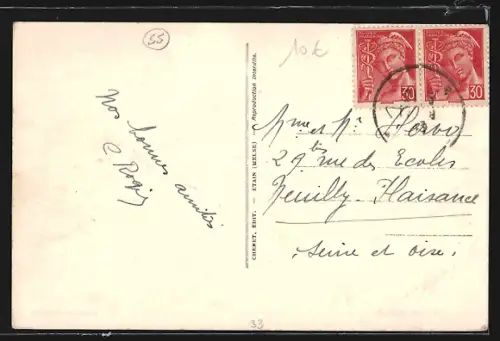 55
10€
30
30
Nos bonnes amitiés
C Roger
CHENET, ÉDIT. - ETAIN (MEUSE) - Reproduction interdite.
Mme et Mr
29 bis rue des Ecoles
Neuilly-Plaisance
Seine et oise.
33